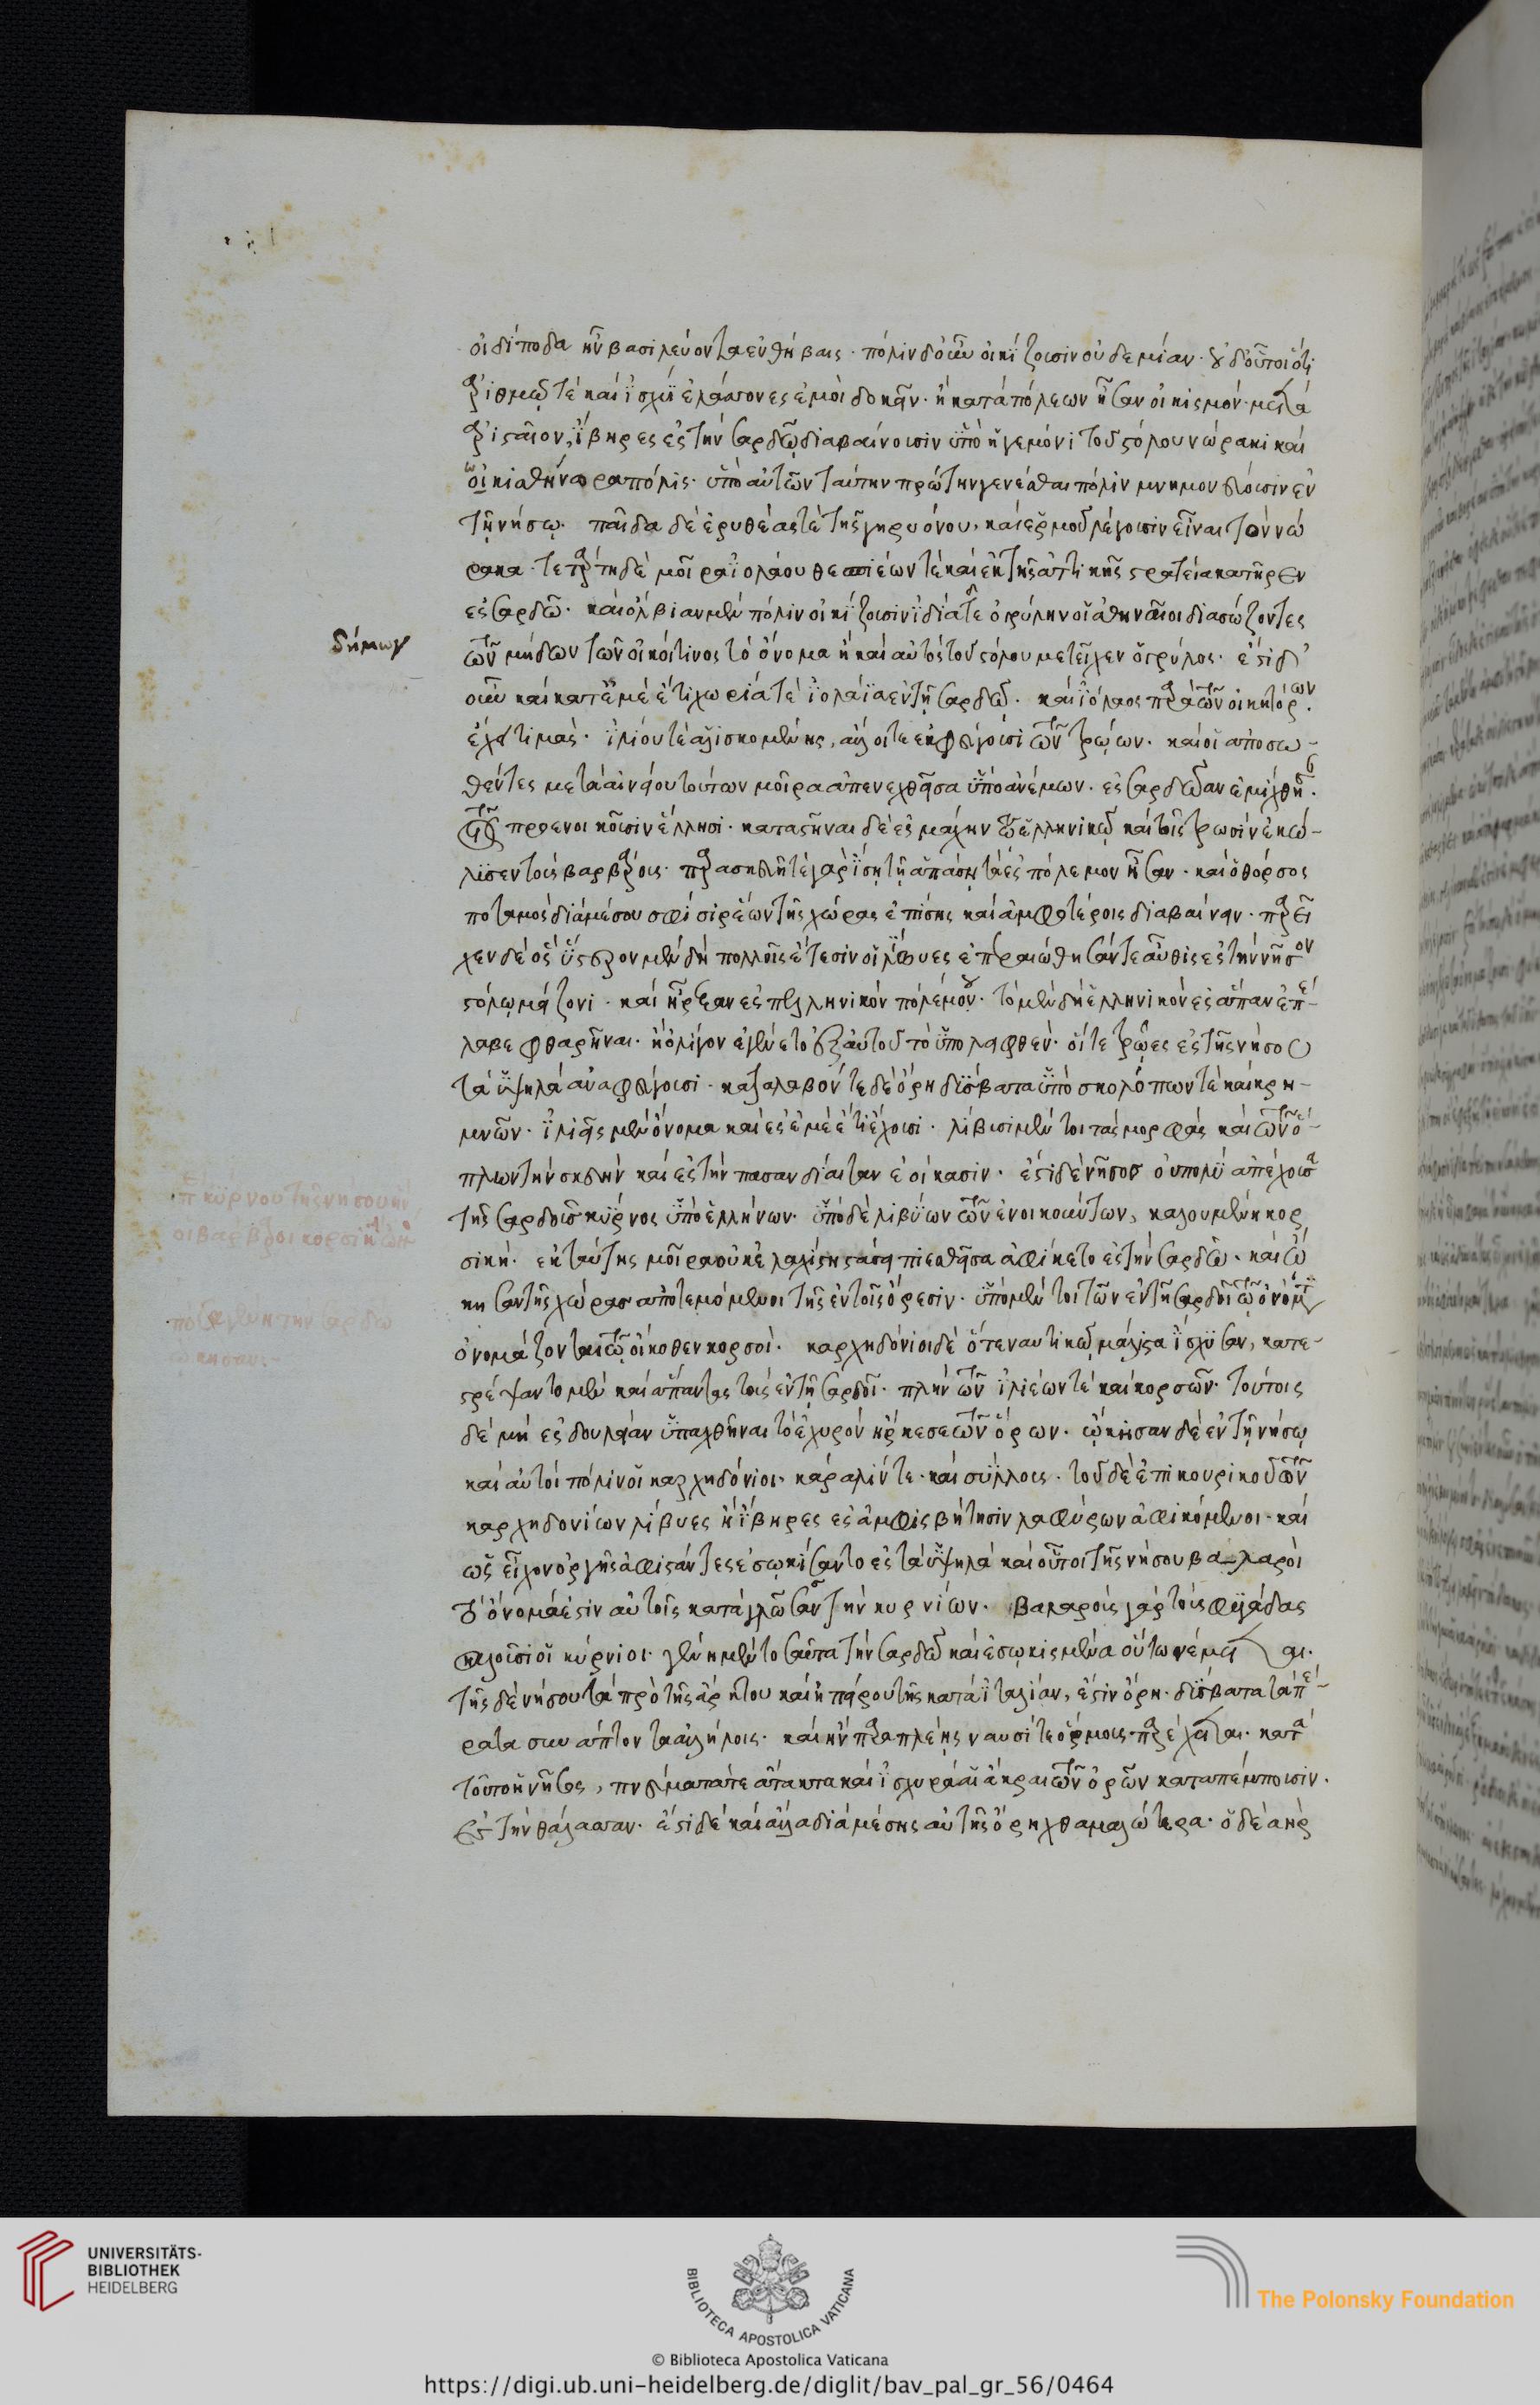 οἰδίποδα ἢν βασιλεύοντα ἐν θήβαις · πόλιν δ' οὖν οἰκίζουσιν οὐδεμίαν · οὐδ' οὗτοι ὅτι
ἀριθμῷ τὲ καὶ ἰσχύϊ ἐλάσσονες ἐμοὶ δοκεῖν · ἢ κατὰ πόλεων ἦσαν οἰκισμόν · μετὰ
ἀρισταῖον, ἴβηρες ἐς τὴν σαρδὼ διαβαίνουσιν ὑπὸ ἡγεμόνι τοῦ στόλου νώρακι καὶ
οἰκίσθη νώρα πόλις · ὑπὸ αὐτῶν ταύτην πρώτην γενέσθαι πόλιν μνημονεύουσιν ἐν
τῇ νήσῳ · παῖδα δὲ ἐρυθείας τὲ τῆς γηρυόνου, καὶ ἑρμοῦ λέγουσιν εἶναι τὸν νώ
ρακα · τετάρτη δὲ μοῖρα ἰολάου θεσπιέων τὲ καὶ ἐκ τῆς ἀττικῆς στρατεία κατῆρεν
ἐς σαρδώ · καὶ ὀλβίαν μὲν πόλιν οἰκίζουσιν ἰδίᾳ τε ὀγρύλην οἱ ἀθηναῖοι διασώζοντες
δήμων
τῶν μήδων τῶν οἴκοι τινος τὸ ὄνομα ἢ καὶ αὐτὸς τοῦ στόλου μετεῖχεν ὄγρύλος · ἔστι δ'
οὖν καὶ κατ' ἐμὲ ἔτι χωρία τὲ ἰολάϊα ἐν τῇ σαρδῷ · καὶ ἰόλαος παρὰ τῶν οἰκητόρων
ἔχει τιμὰς · ἰλίου τὲ ἁλισκομένης, ἄλλοι τε ἐκφεύγουσι τῶν τρώων · καὶ οἱ ἀποσω-
θέντες μετὰ αἰνείου τούτων μοῖρα ἀπενεχθεῖσα ὑπὸ ἀνέμων · ἐς σαρδὼ ἀνεμίχθησ
τοῖς προενοικοῦσιν ἕλλησι · καταστῆναι δὲ ἐς μάχην τῷ ἑλληνικῷ καὶ τοῖς τρωσὶν ἐκώ-
λυσεν τοὺς βαρβάρους · παρασκευῇ τὲ γὰρ ἴσῃ τῇ ἁπάσῃ τὰ ἐς πόλεμον ἦσαν · καὶ ὁ θόρσος
ποταμὸς διὰ μέσου σφίσι ῥέων τῆς χώρας ἐπίσης καὶ ἀμφοτέροις διαβαίνειν · παρεῖ
χεν δέος ὕστερον μὲν δὴ πολλοῖς ἔτεσιν οἱ λίβυες ἐπεραιώθησάν τε αὖθις ἐς τὴν νῆσον
στόλῳ μείζονι · καὶ ἦρξαν ἐς τὸ ἑλληνικὸν πολέμου · τὸ μὲν δὴ ἑλληνικὸν ἐς ἅπαν ἐπέ-
λαβε φθαρῆναι · ἢ ὀλίγον ἐγένετο ἐξ αὐτοῦ τὸ ὑπολειφθέν · οἵ τε τρῶες ἐς τῆς νήσου
τὰ ὑψηλὰ ἀναφεύγουσι · καταλαβόντε δὲ ὄρη δύσβατα ὑπὸ σκολόπων τὲ καὶ κρη-
μνῶν · ἰλιεῖς μὲν ὄνομα καὶ ἐς ἐμὲ ἔτι ἔχουσι · λίβυσι μέν τοι τὰς μορφὰς καὶ τῶν ὅ-
πλων τὴν σκευὴν καὶ ἐς τὴν πασαν δίαιταν ἐοίκασιν · ἔστι δὲ νῆσος οὐ πολὺ ἀπέχουσα
τῆς σαρδοῦς κύρνος ὑπὸ ἑλλήνων · ὑπὸ δὲ λιβύων τῶν ἐνοικούντων, καλουμένη κορ
σική · ἐκ ταύτης μοῖρα οὐκ ἐλαχίστη στάσει πιεσθεῖσα ἀφίκετο ἐς τὴν σαρδώ · καὶ ᾤ
κησαν τῆς χώρας ἀποτεμόμενοι τῆς ἐν τοῖς ὄρεσιν · ὑπὸ μέν τοι τῶν ἐν τῇ σαρδοῖ τῷ ὀνόματι
ὀνομάζονται τῷ οἴκοθεν κορσοί · καρχηδόνιοι δὲ ὅτε ναυτικῷ μάλιστα ἴσχυσαν, κατε-
στρέψαντο μὲν καὶ ἅπαντας τοὺς ἐν τῇ σαρδοῖ · πλὴν τῶν ἰλιέων τὲ καὶ κορσῶν · τούτοις
δὲ μὴ ἐς δουλείαν ὑπαχθῆναι τὸ ἐχυρὸν ἤρκεσε τῶν ὄρων · ᾤκησαν δὲ ἐν τῇ νήσῳ
καὶ αὐτοὶ πόλιν οἱ καρχηδόνιοι · κάραλίν τε · καὶ σύλλους · τοῦ δὲ ἐπικουρικοῦ τῶν
καρχηδονίων λίβυες ἢ ἴβηρες ἐς ἀμφισβήτησιν λαφύρων ἀφικόμενοι · καὶ
ὡς εἶχον ὀργῆς ἀφιστάντες ἐσῳκίσαντο ἐς τὰ ὑψηλὰ καὶ οὗτοι τῆς νήσου βαλαροὶ
τ' ὄνομά ἐστιν αὐτοῖς κατὰ γλῶσσαν τὴν κυρνίων · βαλαροὺς γὰρ τοὺς φυγάδας
καλοῦσι οἱ κύρνιοι · γένη μὲν τοσαῦτα τὴν σαρδὼ καὶ ἐσῳκισμένα οὕτω νέμεται ·
τῆς δὲ νήσου τὰ πρὸ τῆς ἄρκτου καὶ ἠπείρου τῆς κατὰ ἰταλίαν, ἐστιν ὄρη · δύσβατα τὰ πέ-
ρατα συνάπτοντα ἀλλήλοις · καὶ ἢν παραπλέῃς ναυσί τε ὅρμους παρέχεται · κατὰ
τοῦτο ἡ νῆσος, πνεύματά τε ἄτακτα καὶ ἰσχυρὰ αἱ ἄκραι τῶν ὀρῶν καταπέμπουσιν ·
ἐς τὴν θάλασσαν · ἔστι δὲ καὶ ἄλλα διὰ μέσης αὐτῆς ὄρη χθαμαλώτερα · ὁ δὲ ἀὴρ
κύρνου τῆς νήσου
οἱ βάρβαροι κορσικὴν
τὴν σαρδὼ
ᾤκησαν
UNIVERSITÄTS-
BIBLIOTHEK
HEIDELBERG
BIBLIOTECA APOSTOLICA VATICANA
The Polonsky Foundation
© Biblioteca Apostolica Vaticana
https://digi.ub.uni-heidelberg.de/diglit/bav_pal_gr_56/0464